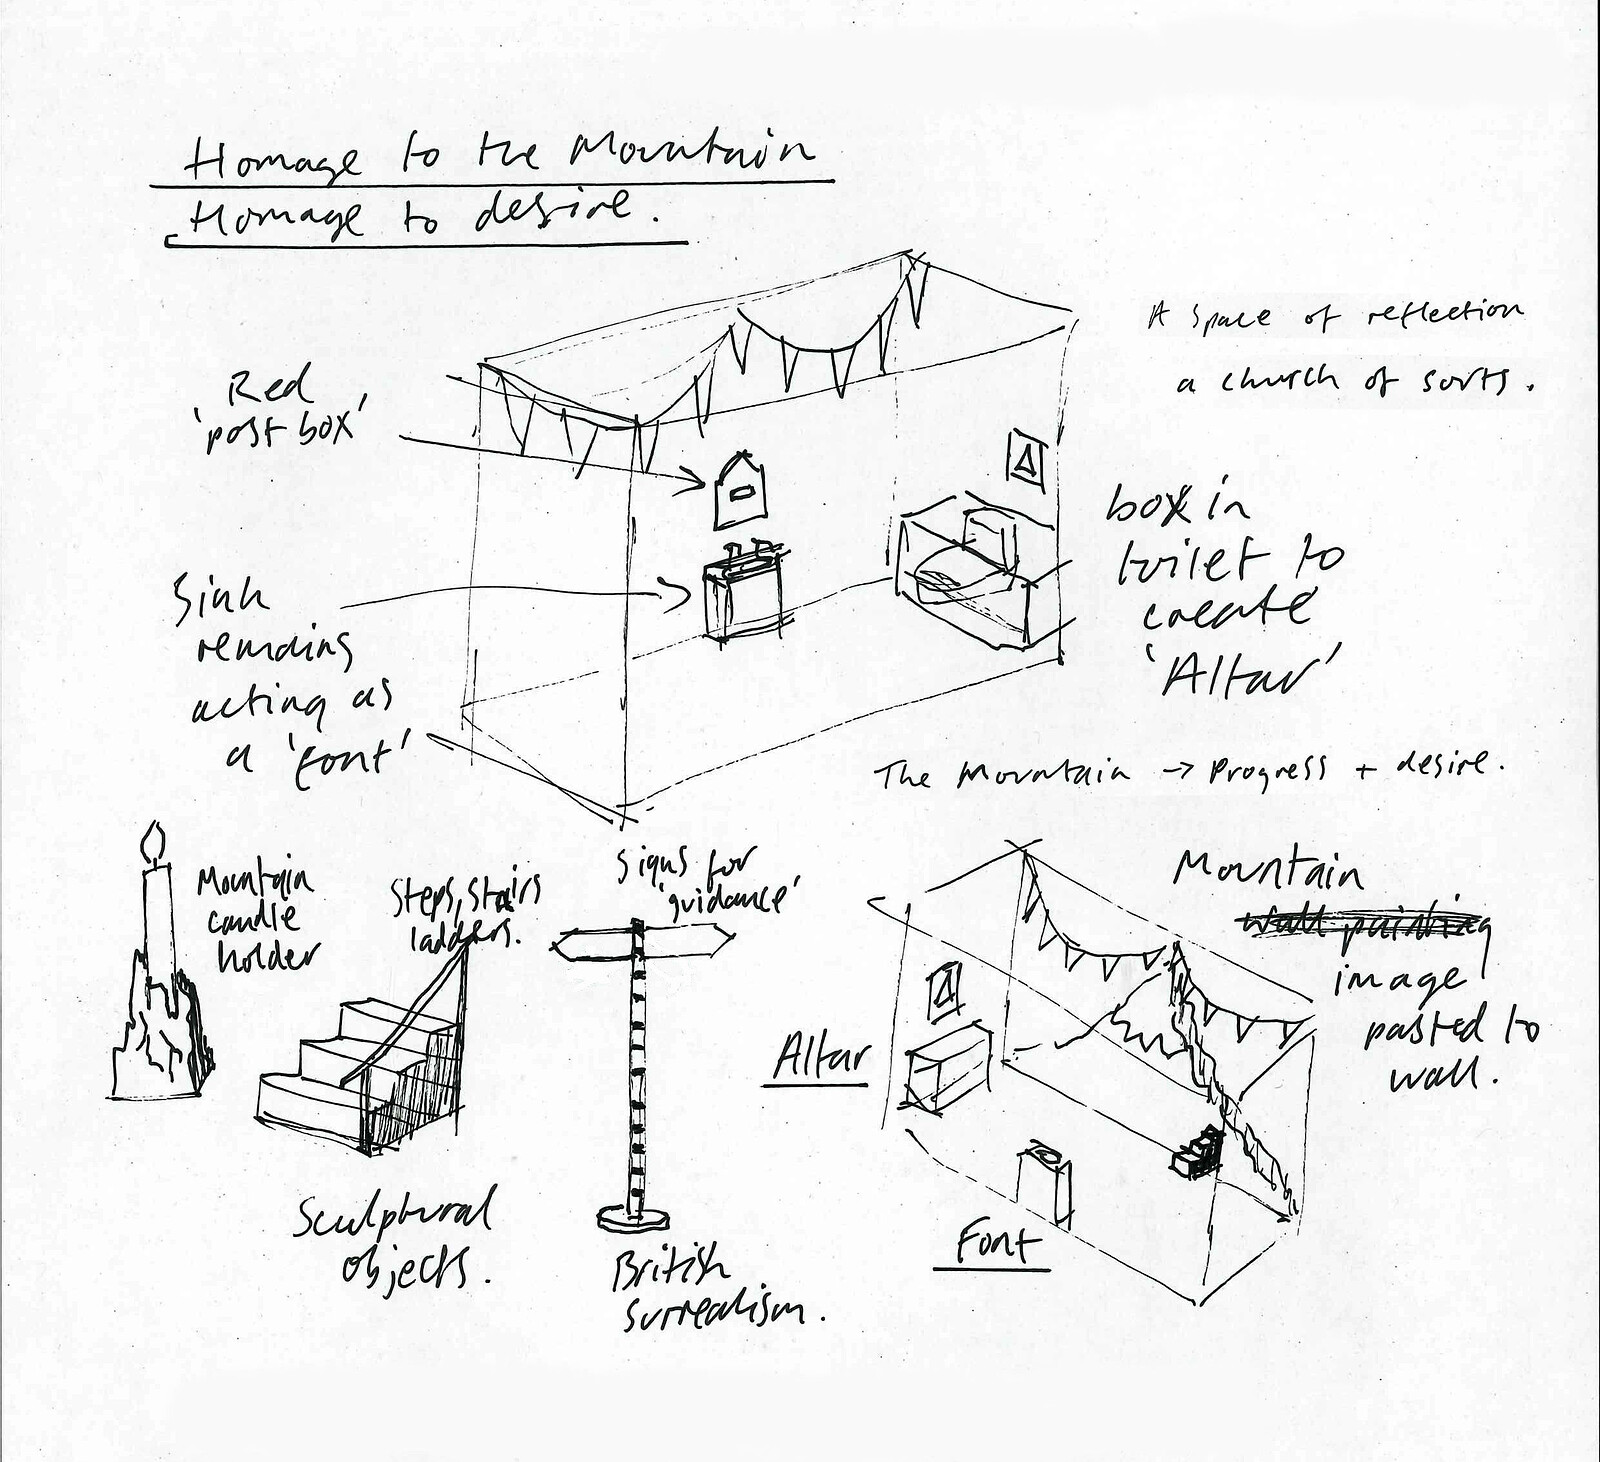 Homage to the Mountain
Homage to desire.
A space of reflection
a church of sorts.
Red
'post box'
box in
toilet to
create
'Altar'
Sink
remains
acting as
a 'font'
The Mountain → Progress + desire.
Mountain
candle
holder
Steps, Stairs
ladders.
Signs for
'guidance'
Mountain
wall painting
image
pasted to
wall.
Altar
Font
Sculptural
objects.
British
surrealism.